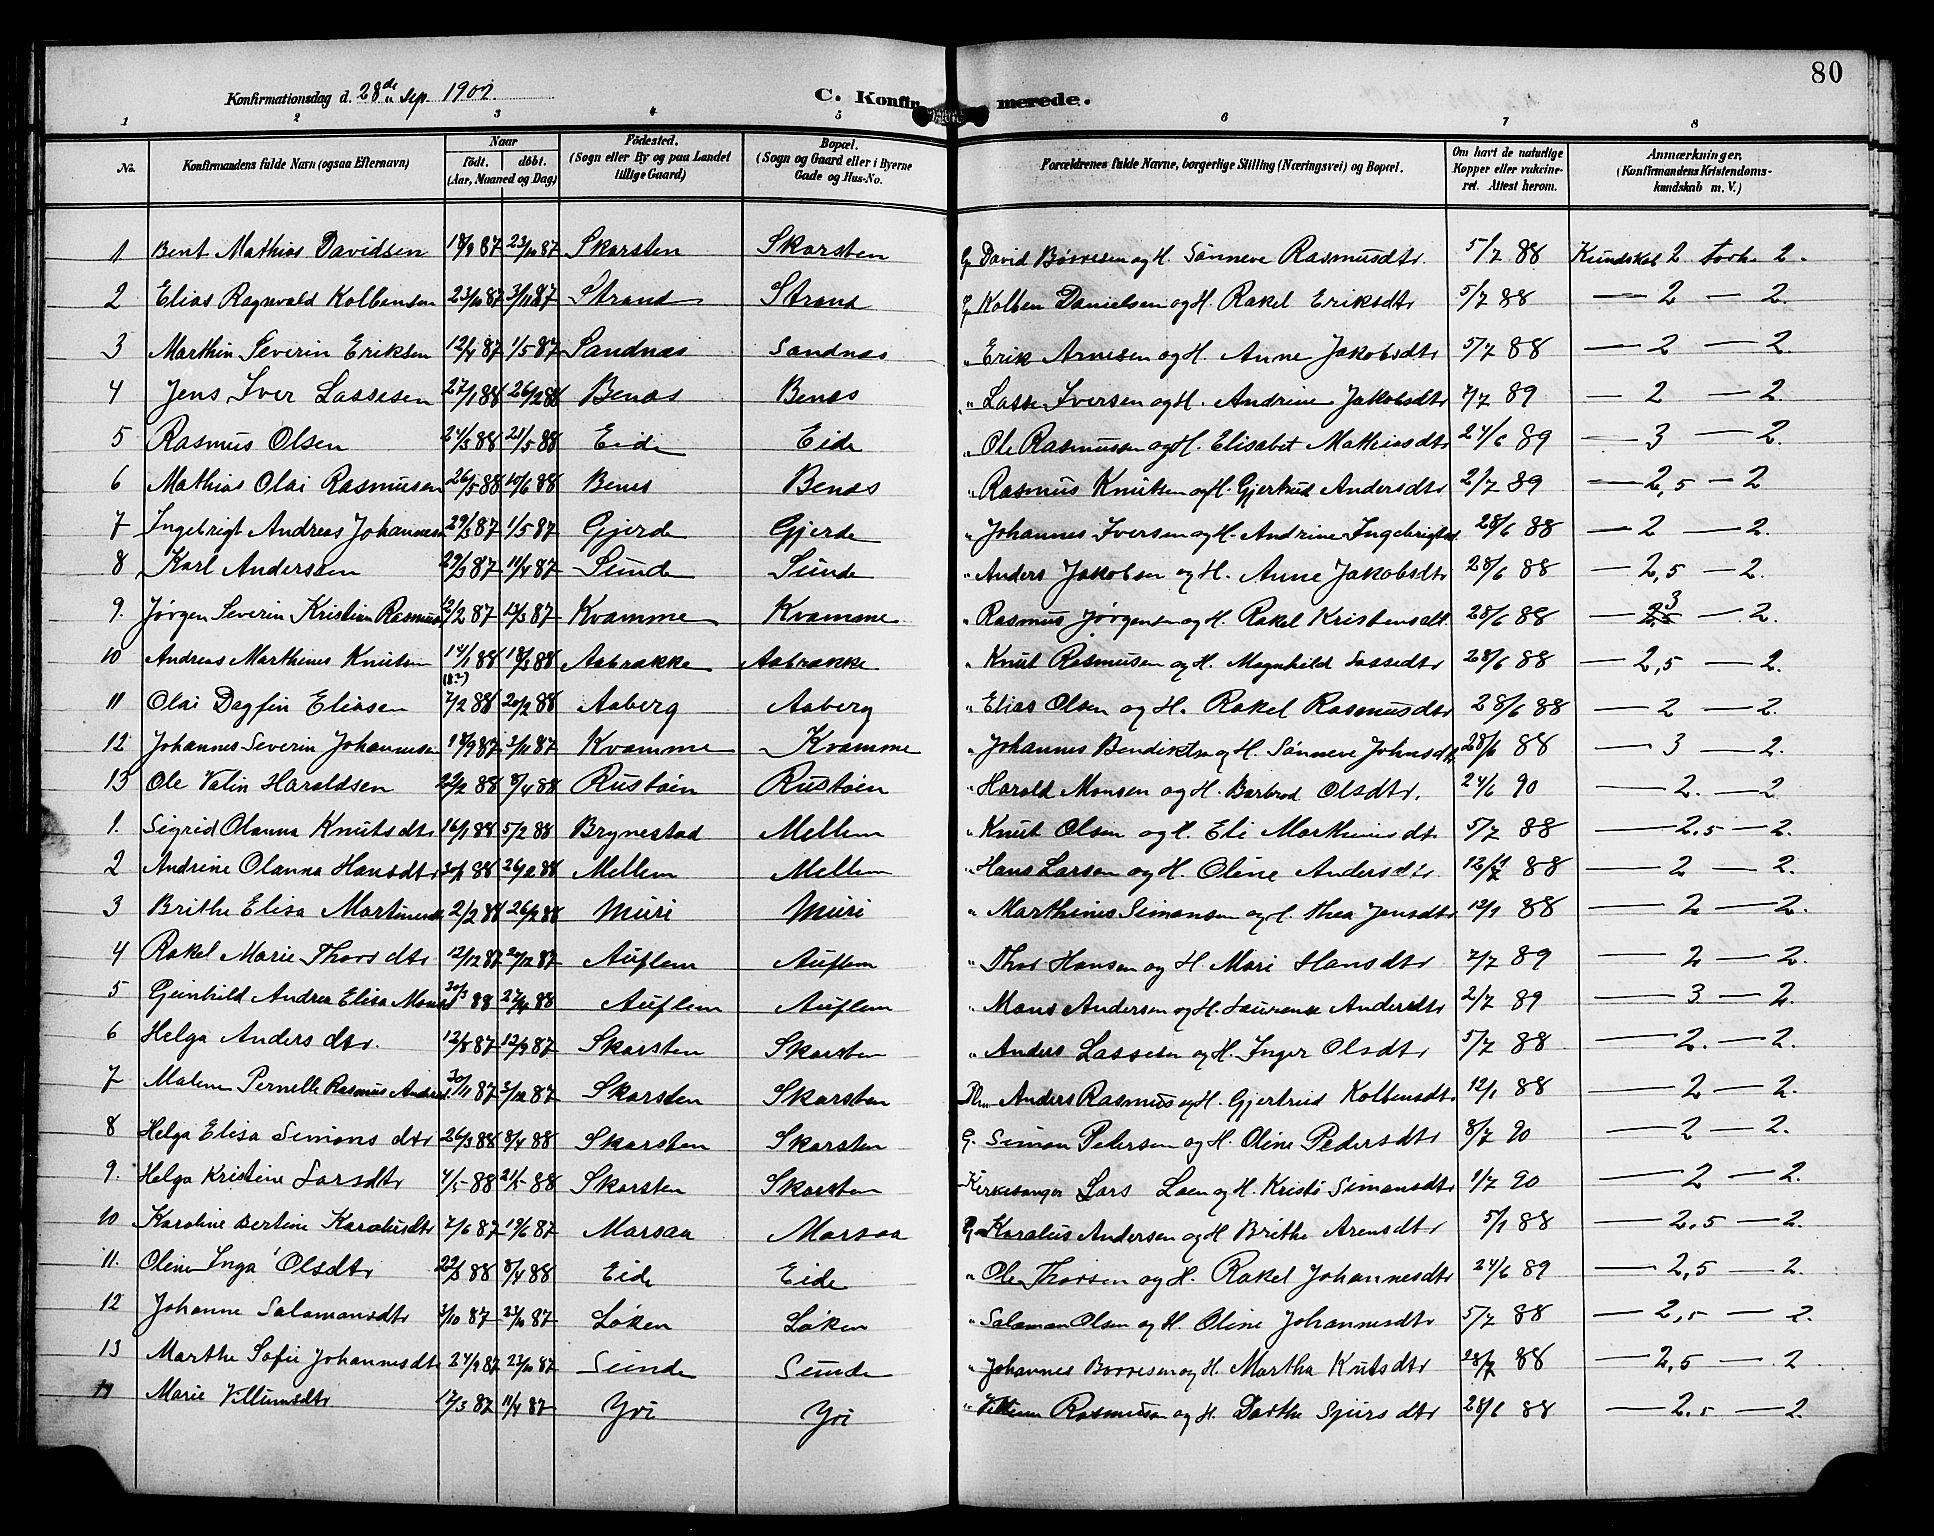 80
Konfirmationsdag d. 28de Sep. 1902.
C. Konfirmerede.
1 2 3 4 5 6 7 8
No. Konfirmandens fulde Navn (ogsaa Efternavn) Naar født. døbt. (Aar, Maaned og Dag) Fødested. (Sogn eller By og paa Landet tillige Gaard) Bopæl. (Sogn og Gaard eller i Byerne Gade og Hus-No. Forældrenes fulde Navne, borgerlige Stilling (Næringsvei) og Bopæl. Om havt de naturlige Kopper eller vakcineret. Attest herom. Anmærkninger. (Konfirmandens Kristendomskundskab m. V.)
1 Bent Mathias Davidsen 18/9 87 23/10 87 Skarsten Skarsten G. David Børresen og H. Sønneve Rasmusdtr 5/7 88 Kundskab 2 forh. 2.
2 Elias Ragnvald Kolbensen 23/10 87 3/11 87 Strand Strand G. Kolben Danielsen og H. Rakel Eriksdtr 5/7 88 — 2 — 2.
3 Marthin Severin Eriksen 12/4 87 1/5 87 Sandnæs Sandnæs " Erik Arnesen og H. Anne Jakobsdtr 5/7 88 — 2 — 2.
4 Jens Iver Lassesen 27/1 88 26/2 88 Benæs Benæs " Lasse Iversen og H. Andrine Jakobsdtr 7/7 89 — 2 — 2
5 Rasmus Olsen 24/3 88 21/5 88 Eide Eide " Ole Rasmussen og H. Elisabet Mathiasdtr 24/6 89 — 3 — 2.
6 Mathias Olai Rasmusen 26/5 88 10/6 88 Benes Benæs " Rasmus Knutsen og H. Gjertrud Andersdtr 2/7 89 — 2,5 — 2
7 Ingebrigt Andreas Johannesen 29/3 87 1/5 87 Gjerde Gjerde " Johannes Iversen og H. Andrine Ingebrigtsd. 28/6 88 — 2 — 2.
8 Karl Andersen 29/3 87 11/4 87 Sunde Sunde " Anders Jakobsen og H. Anne Jakobsdtr 28/6 88 — 2,5 — 2.
9. Jørgen Severin Kristian Rasmus 12/2 87 13/3 87 Kvamme Kvamme " Rasmus Jørgensen og H. Rakel Kristensdt. 28/6 88 — 3 — 2.
10 Andreas Marthines Knutsen 14/1 88 (18?) 18/3 88 Aabrække Aabrække " Knut Rasmusen og H. Magnhild Lassedtr 28/6 88 — 2,5 — 2.
11 Olai Dagfin Eliasen 7/2 88 20/2 88 Aaberg Aaberg " Elias Olsen og H. Rakel Rasmusdtr 28/6 88 — 2 — 2.
12 Johannes Severin Johannesen 18/9 87 3/11 87 Kvamme Kvamme " Johannes Bendiktsen og H. Sønneve Johnsdt. 28/6 88 — 3 — 2.
13 Ole Valin Haraldsen 22/2 88 8/4 88 Rustøen Rustøen " Harald Monsen og H. Barbrod Olsdtr. 24/6 90 — 2. — 2
1. Sigrid Olanna Knutsdtr 16/1 88 5/2 88 Brynestad Mellem " Knut Olsen og H. Eli Marthinusdt. 5/7 88 — 2,5 — 2.
2 Andrine Olanna Hansdtr 30/1 88 26/2 88 Mellem Mellem " Hans Larsen og H. Oline Andersdtr 12/1 88 — 2 — 2.
3 Brithe Elisa Martinusdt. 2/2 88 26/2 88 Muri Muri " Marthinus Simonsen og H. Thea Jensdtr 12/1 88 — 2 — 2.
4 Rakel Marie Thorsdtr 12/12 87 27/12 87 Auflem Auflem " Thor Hansen og H. Mari Hansdtr 7/7 89 — 2 — 2.
5 Geinhild Andrea Elisa Mons 30/3 88 27/4 88 Auflem Auflem " Mons Andersen og H. Laurense Andersdtr 2/7 89 — 3 — 2.
6 Helga Andersdtr. 12/8 87 12/9 87 Skarsten Skarsten " Anders Lassesen og H. Inger Olsdtr 5/7 88 — 2. — 2.
7 Malene Pernelle Rasmus Andersd. 30/11 87 3/12 87 Skarsten Skarsten Anders Rasmus og H. Gjertrud Kolbensdtr 12/1 88 — 2 — 2.
8 Helga Elisa Simonsdtr 26/3 88 8/4 88 Skarsten Skarsten G. Simon Petersen og H. Oline Pedersdtr 8/7 90 — 2 — 2.
9. Helga Kristine Larsdtr 4/5 88 21/5 88 Skarsten Skarsten Kirkesanger Lars Loen og H. Kristi Simonsdtr 1/7 90 — 2 — 2.
10 Karoline Bertine Karolusdtr 7/6 87 19/6 87 Marsaa Marsaa G. Karolus Andersen og H Brithe Arensdtr 5/1 88 — 2,5 — 2.
11. Oline Inga Olsdtr 22/3 88 8/4 88 Eide Eide " Ole Thorsen og H. Rakel Johannesdtr 24/6 89 — 2,5 — 2.
12 Johanne Salamonsdtr 3/10 87 23/10 87 Løken Løken " Salamon Olsen og H. Oline Johannesdtr 5/7 88 — 2,5 — 2.
13 Marthe Sofie Johannesdt. 24/9 87 23/10 87 Sunde Sunde " Johannes Borresen og H. Martha Knutsdtr 28/7 88 — 2,5 — 2
14 Marie Villumsdtr 17/3 87 11/4 87 Yri Yri " Villum Rasmusen og H. Dorthe Sjursdtr 28/6 88 — 2,5 — 2.